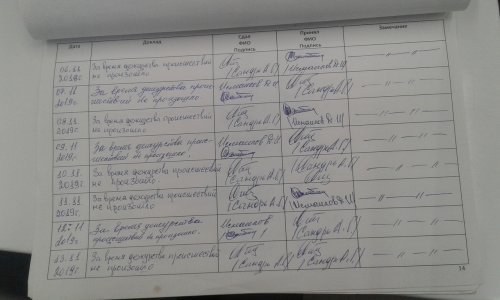 Дата Доклад Сдал ФИО Подпись Принял ФИО Подпись Замечание
06.11 2019г. За время дежурства происшествий не произошло (Сандро А.Г) — // — // —
07.11 2019г. За время дежурства происшествий не произошло. (Сандро А.Г) — // — // —
08.11 2019г. За время дежурства происшествий не произошло (Сандро А.Г) — // — // —
09.11 2019г. За время дежурства происшествий не произошло. (Сандро А.Г) — // — // —
10.11 2019г. За время дежурства происшествий не произошло (Сандро А.Г) (Сандро А.Г) — // — // —
11.11 2019г. За время дежурства происшествий не произошло (Сандро А.Г) — // — // —
12.11 2019г. За время дежурства происшествий не произошло. (Сандро А.Г) — // — // —
13.11 2019г. За время дежурства происшествий не произошло. (Сандро А.Г) (Сандро А.Г) — // — // —
14